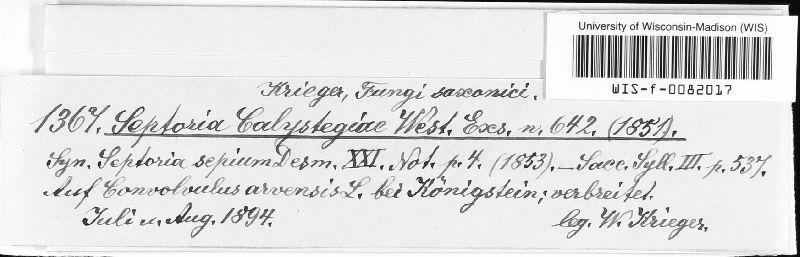 University of Wisconsin-Madison (WIS)
WIS-f-0082017
Krieger, Fungi saxonici.
1367. Septoria Calystegiae West. Exs. n. 642. (1851).
Syn. Septoria sepium Desm. XXI. Not. p. 4. (1853). — Sacc. Syll. III. p. 537.
Auf Convolvulus arvensis L. bei Königstein; verbreitet.
Juli u. Aug. 1894. leg. W. Krieger.